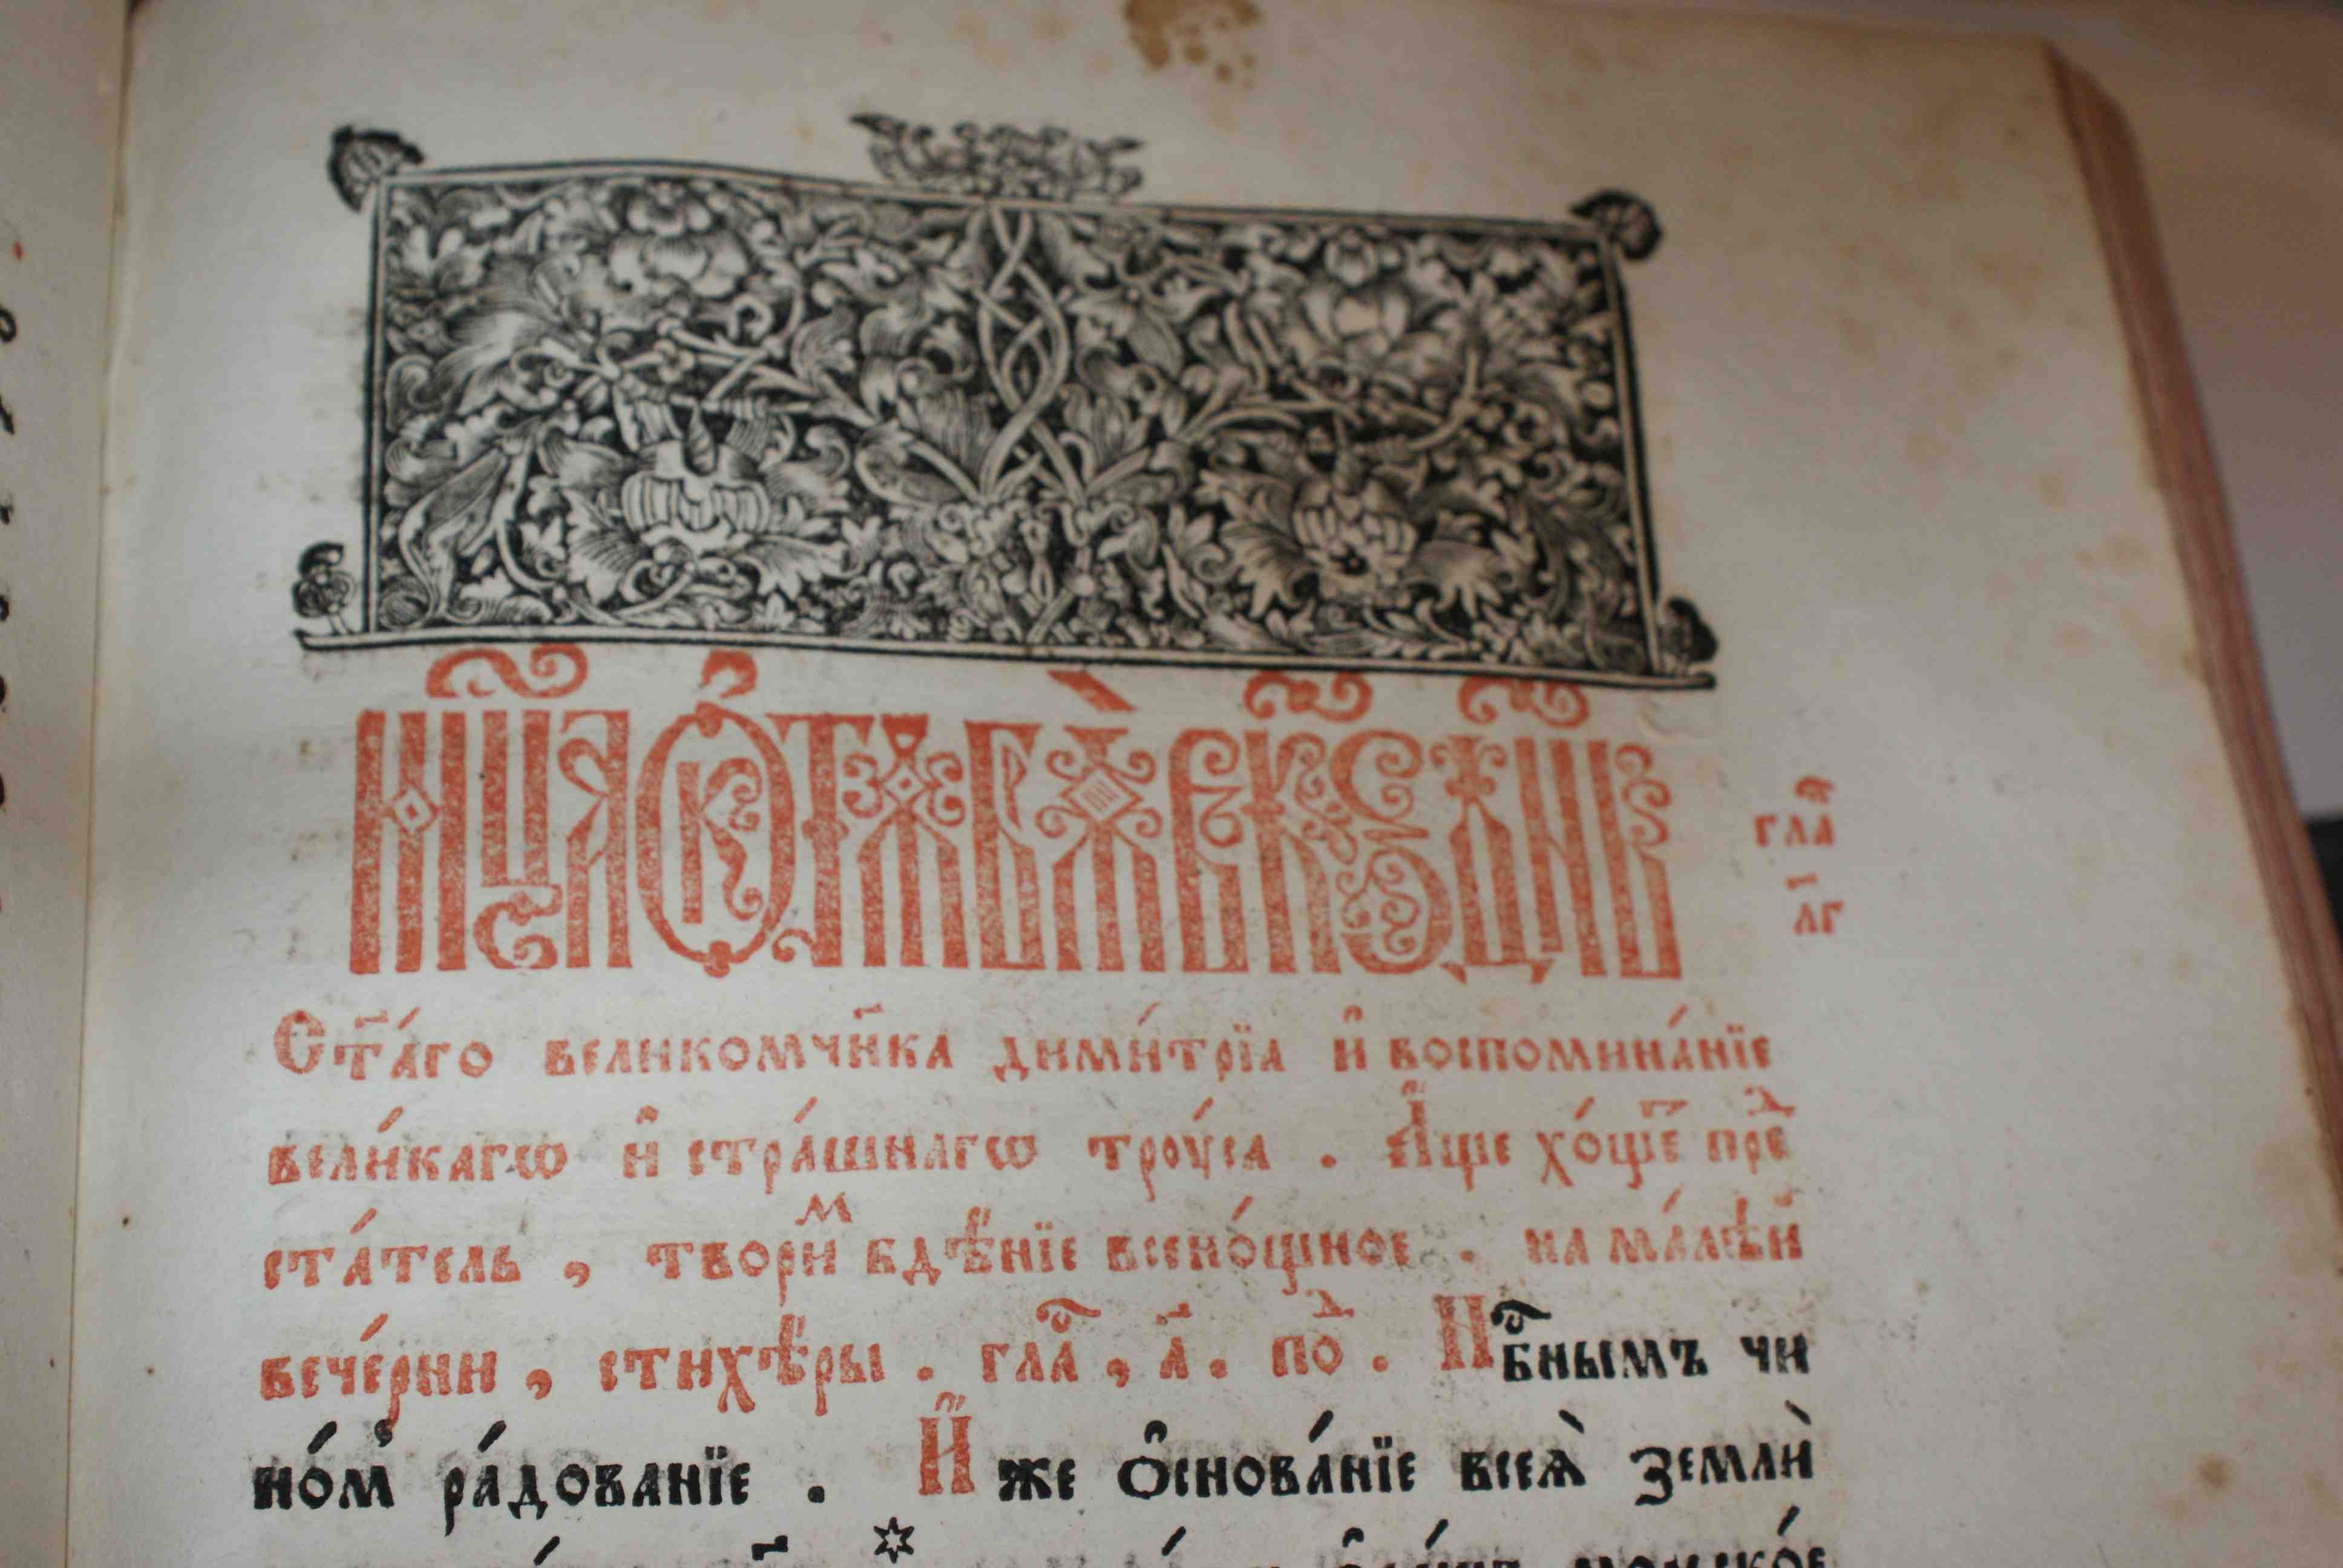 Мц҃а ѻктѧбрѧ̀ въ к҃ѕ дн҃ь
гла҃
л҃г
Ст҃а́го великомч҃нка дими́трїа и҆ воспомина́нїе
вели́кагѡ и҆ стра́шнагѡ трꙋ́са . А҆́ще хо́щеⷮ преⷣ
ста́тель , твориⷨ бдѣ́нїе всено́щное . на ма́лѣй
вече́рни , стихѣ́ры . гла҃ , а҃ . поⷣ . Нб҃нымъ чи
но́мъ ра́дованїе . И҆́же ѻ҆снова́нїе всеѧ̀ землѝ